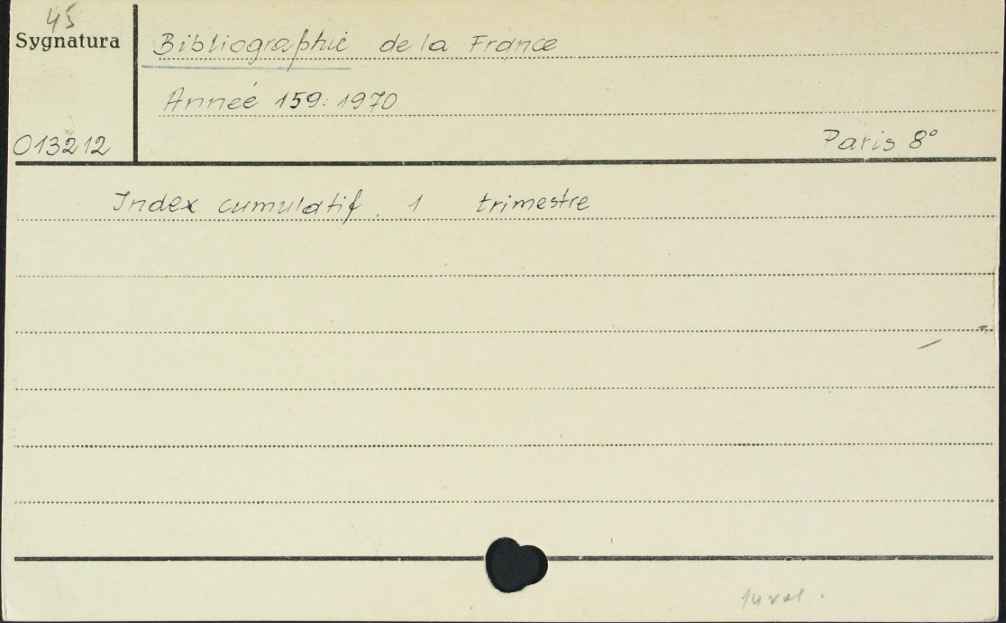 45
Sygnatura
Bibliographie de la France
Anneé 159. 1970
013212
Paris 8°
Index cumulatif. 1 trimestre